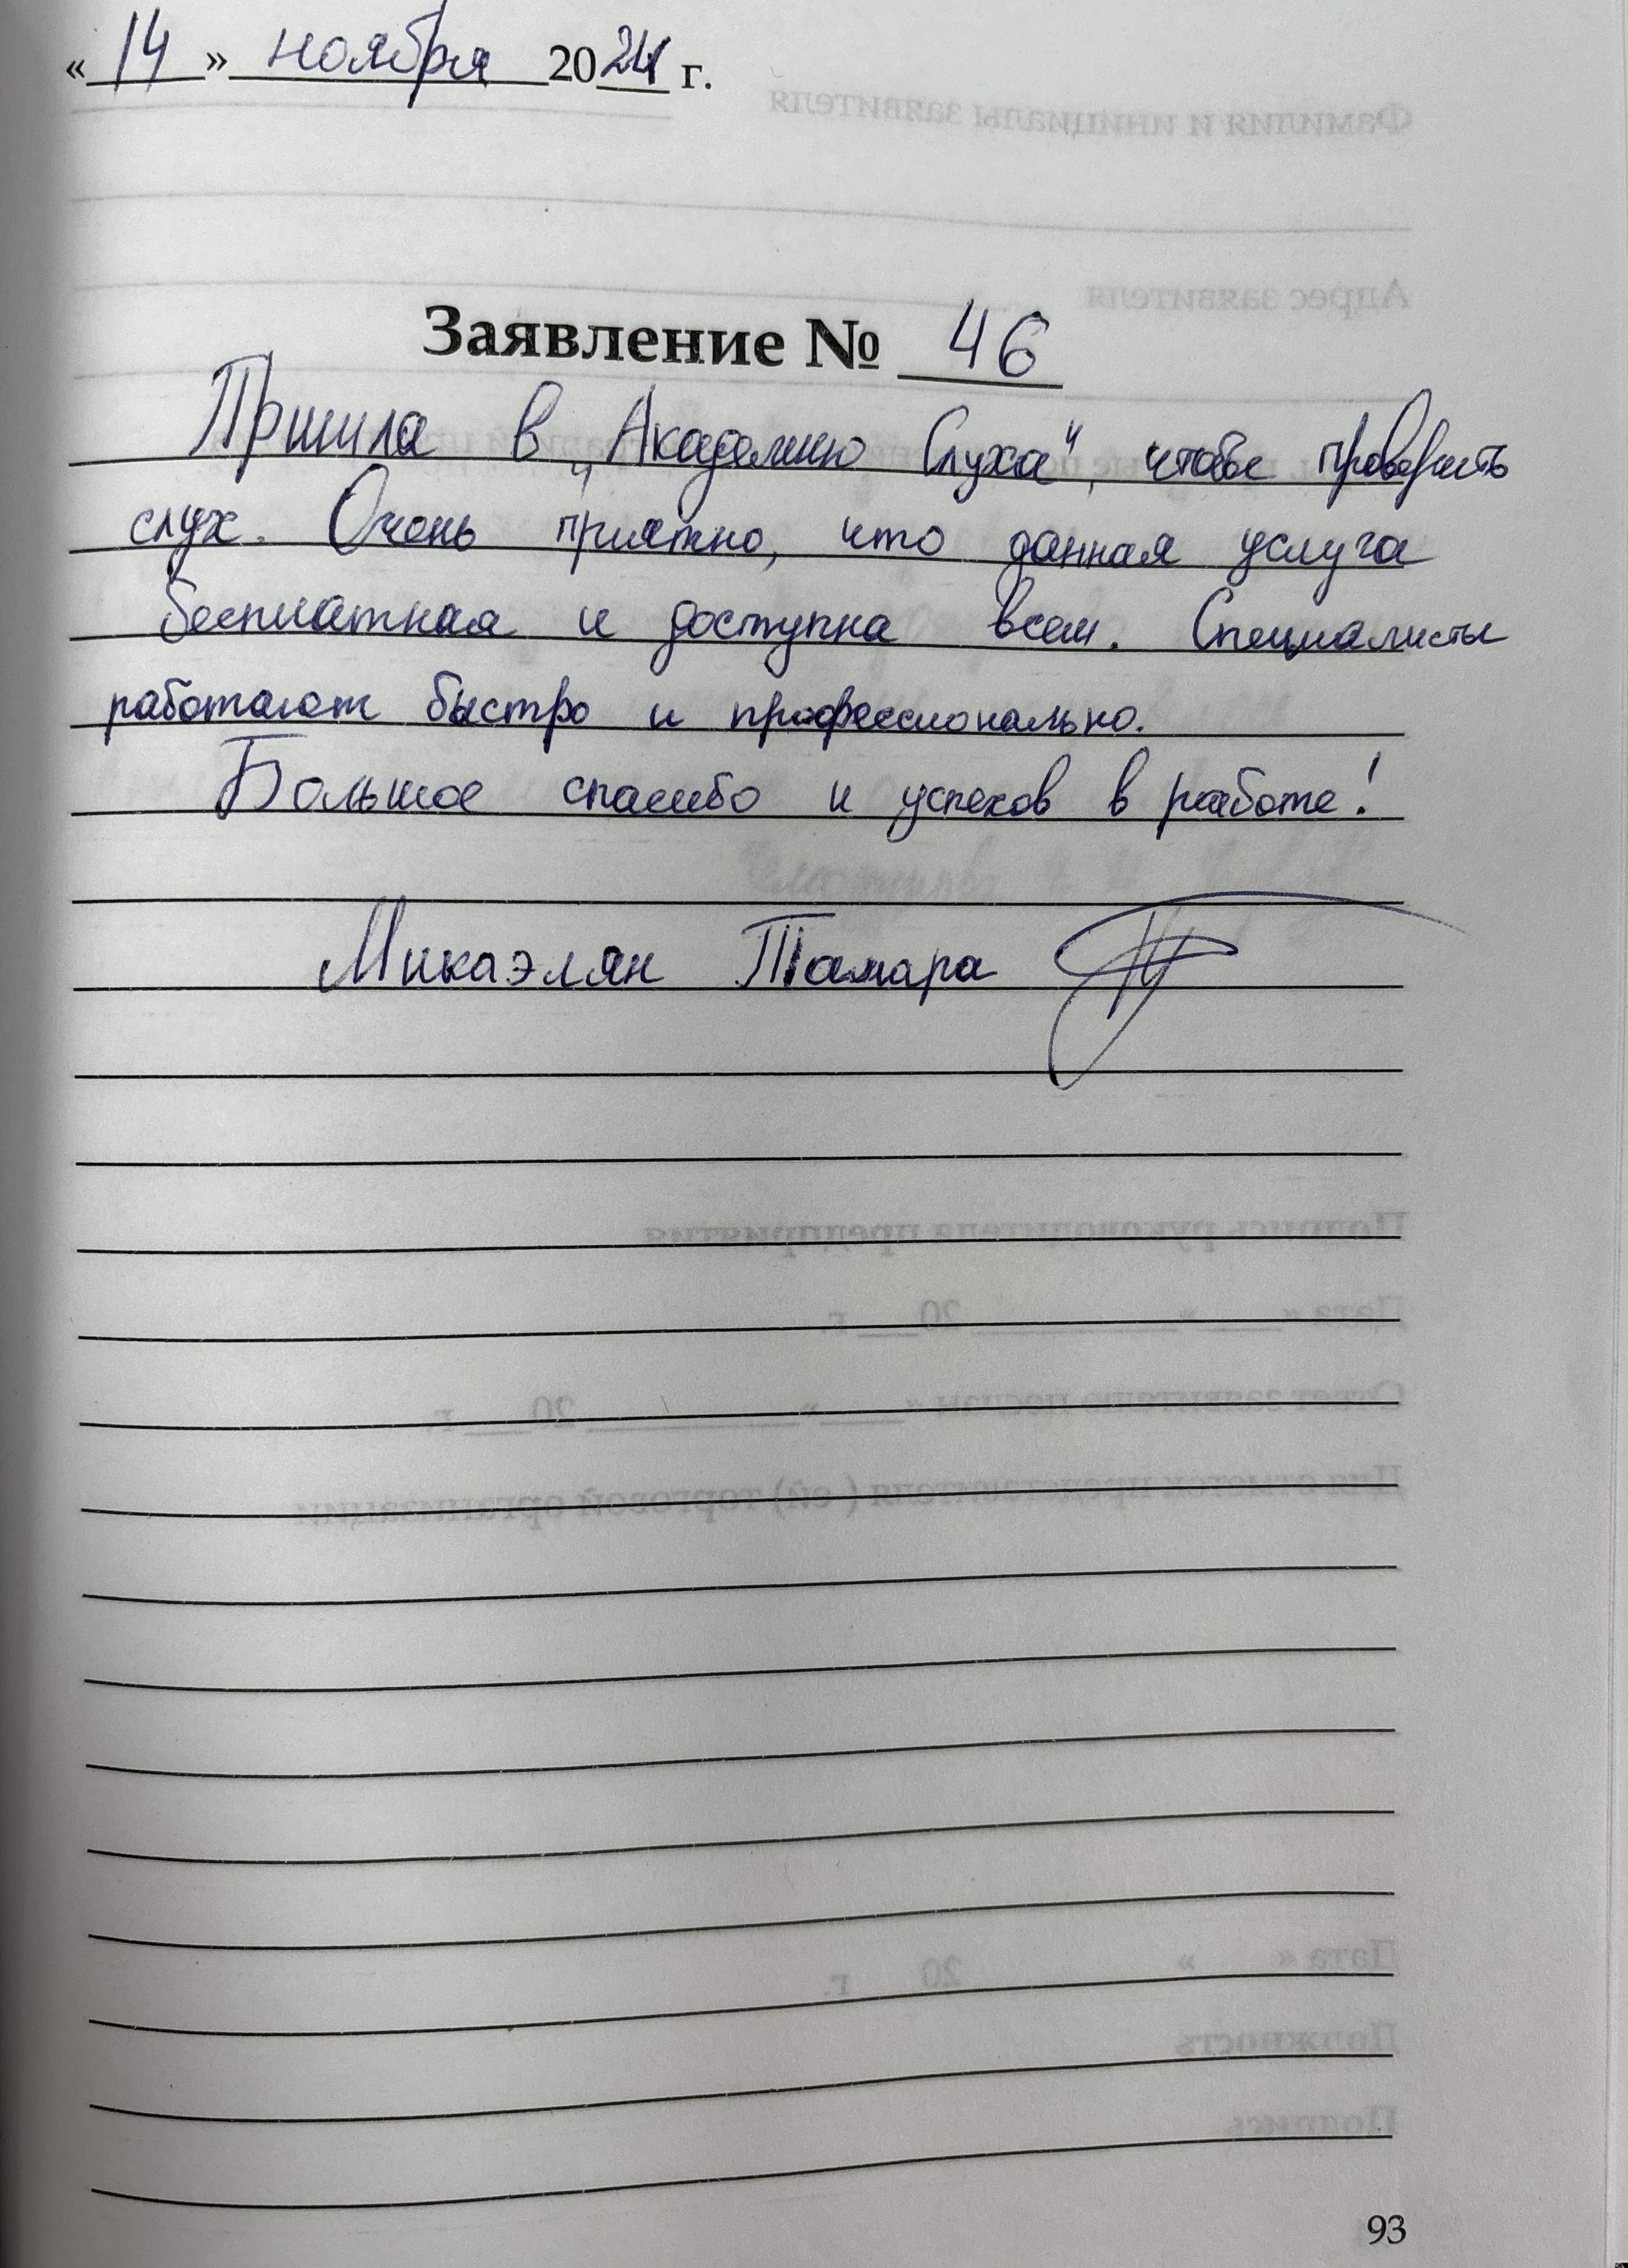 «14» ноября 2024 г.
Заявление № 46
Пришла в „Академию Слуха", чтобы проверить
слух. Очень приятно, что данная услуга
бесплатная и доступна всем. Специалисты
работают быстро и профессионально.
Большое спасибо и успехов в работе!
Микаэлян Тамара
93